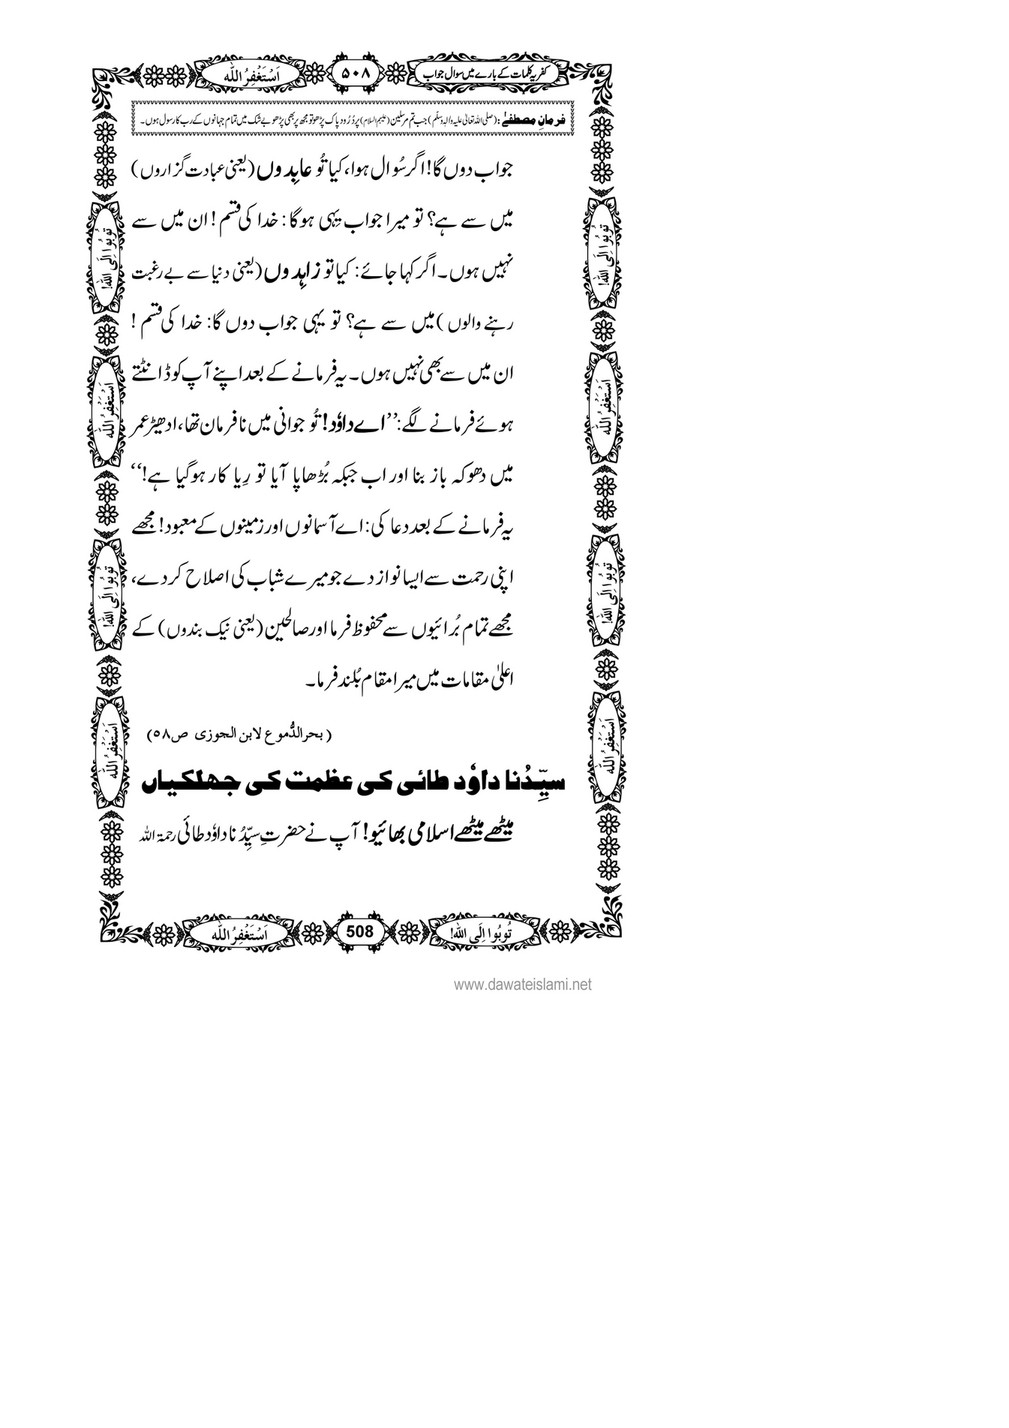 کفریہ کلمات کے بارے میں سوال جواب
۵۰۸
اَسْتَغْفِرُ اللہ
فرمانِ مصطفےٰ : (صلی اللہ تعالیٰ علیہ والہٖ وسلم) جب تم مرسلین (علیہم السلام) پر دُرُود پاک پڑھو تو مجھ پر بھی پڑھو بے شک میں تمام جہانوں کے رب کا رسول ہوں۔
جواب دوں گا! اگر سُوال ہوا، کیا تُو عابِدوں (یعنی عبادت گزاروں)
میں سے ہے؟ تو میرا جواب یِہی ہوگا : خدا کی قسم ! ان میں سے
نہیں ہوں۔ اگر کہا جائے : کیا تو زاہِدوں (یعنی دنیا سے بے رغبت
رہنے والوں ) میں سے ہے؟ تو یہی جواب دوں گا: خدا کی قسم !
ان میں سے بھی نہیں ہوں۔ یہ فرمانے کے بعد اپنے آپ کو ڈانٹتے
ہوئے فرمانے لگے: ’’اے داوٗد! تُو جوانی میں نافرمان تھا، ادھیڑ عمر
میں دھوکہ باز بنا اور اب جبکہ بُڑھاپا آیا تو رِیا کار ہو گیا ہے!‘‘
یہ فرمانے کے بعد دعا کی: اے آسمانوں اور زمینوں کے معبود! مجھے
اپنی رحمت سے ایسا نواز دے جو میرے شباب کی اصلاح کر دے،
مجھے تمام بُرائیوں سے محفوظ فرما اور صالحین (یعنی نیک بندوں) کے
اعلیٰ مقامات میں میرا مقام بُلند فرما۔
( بحرالدُّموع لابن الجوزی ص۵۸)
سیِّدُنا داوٗد طائی کی عظمت کی جھلکیاں
میٹھے میٹھے اسلامی بھائیو! آپ نے حضرتِ سیِّدُنا داوٗد طائی رحمۃ اللہ
تُوبُوا اِلَی اللہ!
508
اَسْتَغْفِرُ اللہ
تُوبُوا اِلَی اللہ!
اَسْتَغْفِرُ اللہ
تُوبُوا اِلَی اللہ!
اَسْتَغْفِرُ اللہ
تُوبُوا اِلَی اللہ!
اَسْتَغْفِرُ اللہ
تُوبُوا اِلَی اللہ!
اَسْتَغْفِرُ اللہ
www.dawateislami.net